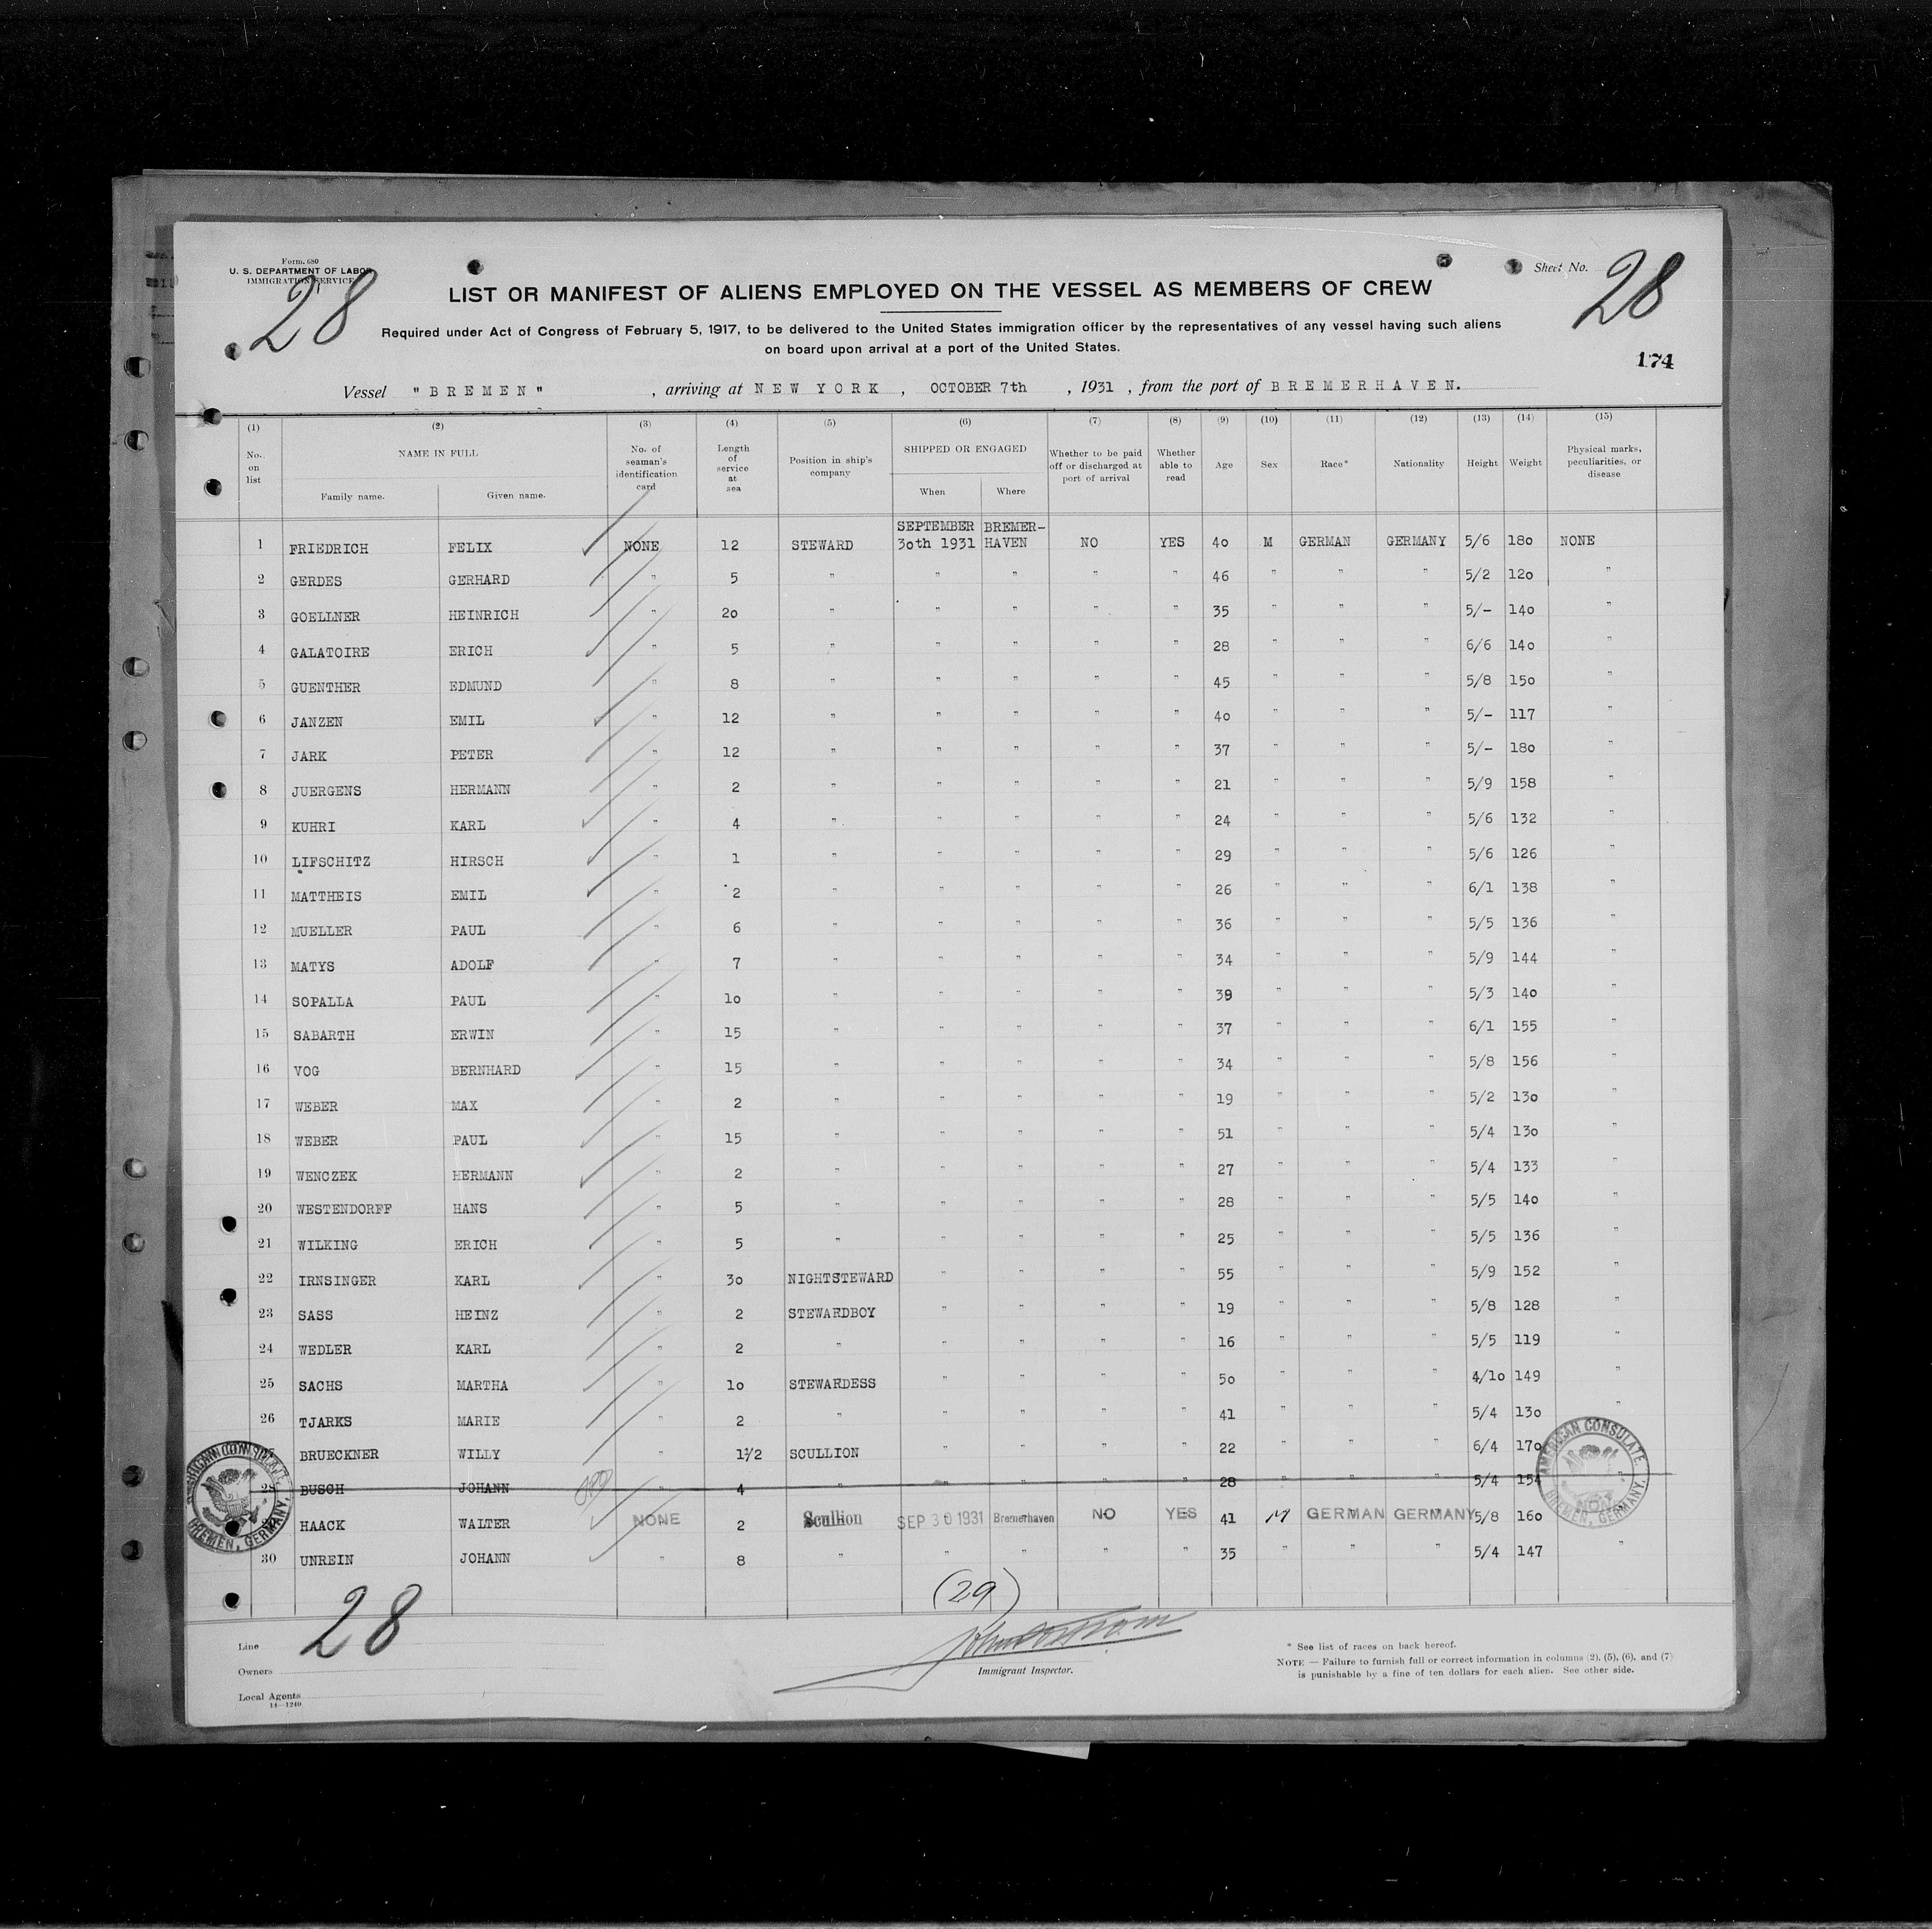 Form. 680
U. S. DEPARTMENT OF LABOR
IMMIGRATION SERVICE
28
Sheet No. 28
LIST OR MANIFEST OF ALIENS EMPLOYED ON THE VESSEL AS MEMBERS OF CREW
Required under Act of Congress of February 5, 1917, to be delivered to the United States immigration officer by the representatives of any vessel having such aliens
on board upon arrival at a port of the United States.
174
Vessel "BREMEN" , arriving at NEW YORK , OCTOBER 7th , 1931 , from the port of BREMERHAVEN.
(1) (2) (3) (4) (5) (6) (7) (8) (9) (10) (11) (12) (13) (14) (15)
No. on list NAME IN FULL Family name. Given name. No. of seaman's identification card Length of service at sea Position in ship's company SHIPPED OR ENGAGED When Where Whether to be paid off or discharged at port of arrival Whether able to read Age Sex Race* Nationality Height Weight Physical marks, peculiarities, or disease
SEPTEMBER BREMER-
1 FRIEDRICH FELIX NONE 12 STEWARD 3oth 1931 HAVEN NO YES 4o M GERMAN GERMANY 5/6 18o NONE
2 GERDES GERHARD " 5 " " " " " 46 " " " 5/2 12o "
3 GOELLNER HEINRICH " 2o " " " " " 35 " " " 5/- 14o "
4 GALATOIRE ERICH " 5 " " " " " 28 " " " 6/6 14o "
5 GUENTHER EDMUND " 8 " " " " " 45 " " " 5/8 15o "
6 JANZEN EMIL " 12 " " " " " 4o " " " 5/- 117 "
7 JARK PETER " 12 " " " " " 37 " " " 5/- 18o "
8 JUERGENS HERMANN " 2 " " " " " 21 " " " 5/9 158 "
9 KUHRI KARL " 4 " " " " " 24 " " " 5/6 132 "
10 LIFSCHITZ HIRSCH " 1 " " " " " 29 " " " 5/6 126 "
11 MATTHEIS EMIL " 2 " " " " " 26 " " " 6/1 138 "
12 MUELLER PAUL " 6 " " " " " 36 " " " 5/5 136 "
13 MATYS ADOLF " 7 " " " " " 34 " " " 5/9 144 "
14 SOPALLA PAUL " 1o " " " " " 39 " " " 5/3 14o "
15 SABARTH ERWIN " 15 " " " " " 37 " " " 6/1 155 "
16 VOG BERNHARD " 15 " " " " " 34 " " " 5/8 156 "
17 WEBER MAX " 2 " " " " " 19 " " " 5/2 13o "
18 WEBER PAUL " 15 " " " " " 51 " " " 5/4 13o "
19 WENCZEK HERMANN " 2 " " " " " 27 " " " 5/4 133 "
20 WESTENDORFF HANS " 5 " " " " " 28 " " " 5/5 14o "
21 WILKING ERICH " 5 " " " " " 25 " " " 5/5 136 "
22 IRNSINGER KARL " 3o NIGHTSTEWARD " " " " 55 " " " 5/9 152 "
23 SASS HEINZ " 2 STEWARDBOY " " " " 19 " " " 5/8 128 "
24 WEDLER KARL " 2 " " " " " 16 " " " 5/5 119 "
25 SACHS MARTHA " 1o STEWARDESS " " " " 5o " " " 4/1o 149 "
26 TJARKS MARIE " 2 " " " " " 41 " " " 5/4 13o "
BRUECKNER WILLY " 1½ SCULLION " " " " 22 " " " 6/4 17o
28 BUSCH JOHANN " 4 " " " " " 28 " " " 5/4 154 "
HAACK WALTER NONE 2 Scullion SEP 30 1931 Bremerhaven NO YES 41 M GERMAN GERMANY 5/8 16o
30 UNREIN JOHANN " 8 " " " " " 35 " " " 5/4 147 "
AMERICAN CONSULATE, BREMEN, GERMANY.
AMERICAN CONSULATE, BREMEN, GERMANY.
28
(29)
Line
Owners
Local Agents
14—1240
Immigrant Inspector.
* See list of races on back hereof.
NOTE — Failure to furnish full or correct information in columns (2), (5), (6), and (7)
is punishable by a fine of ten dollars for each alien. See other side.